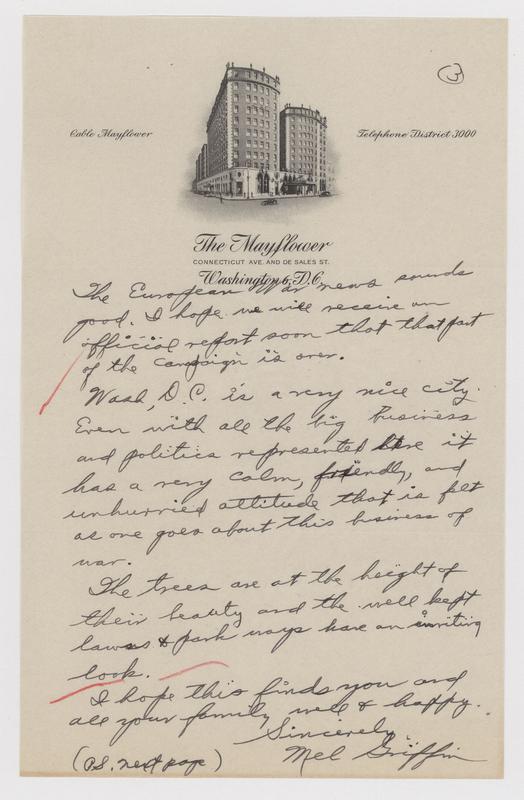 3
Cable Mayflower
Telephone District 3000
The Mayflower
CONNECTICUT AVE. AND DE SALES ST.
Washington 6, D.C.
The European War news sounds
good. I hope we will receive an
official report soon that that part
of the campaign is over.
Wash, D.C. is a very nice city.
Even with all the big business
and politics represented here it
has a very calm, friendly, and
unhurried attitude that is felt
as one goes about this business of
war.
The trees are at the height of
their beauty and the well kept
lawns & park ways have an inviting
look.
I hope this finds you and
all your family well & happy.
Sincerely,
Mel Griffin
(P.S. next page)